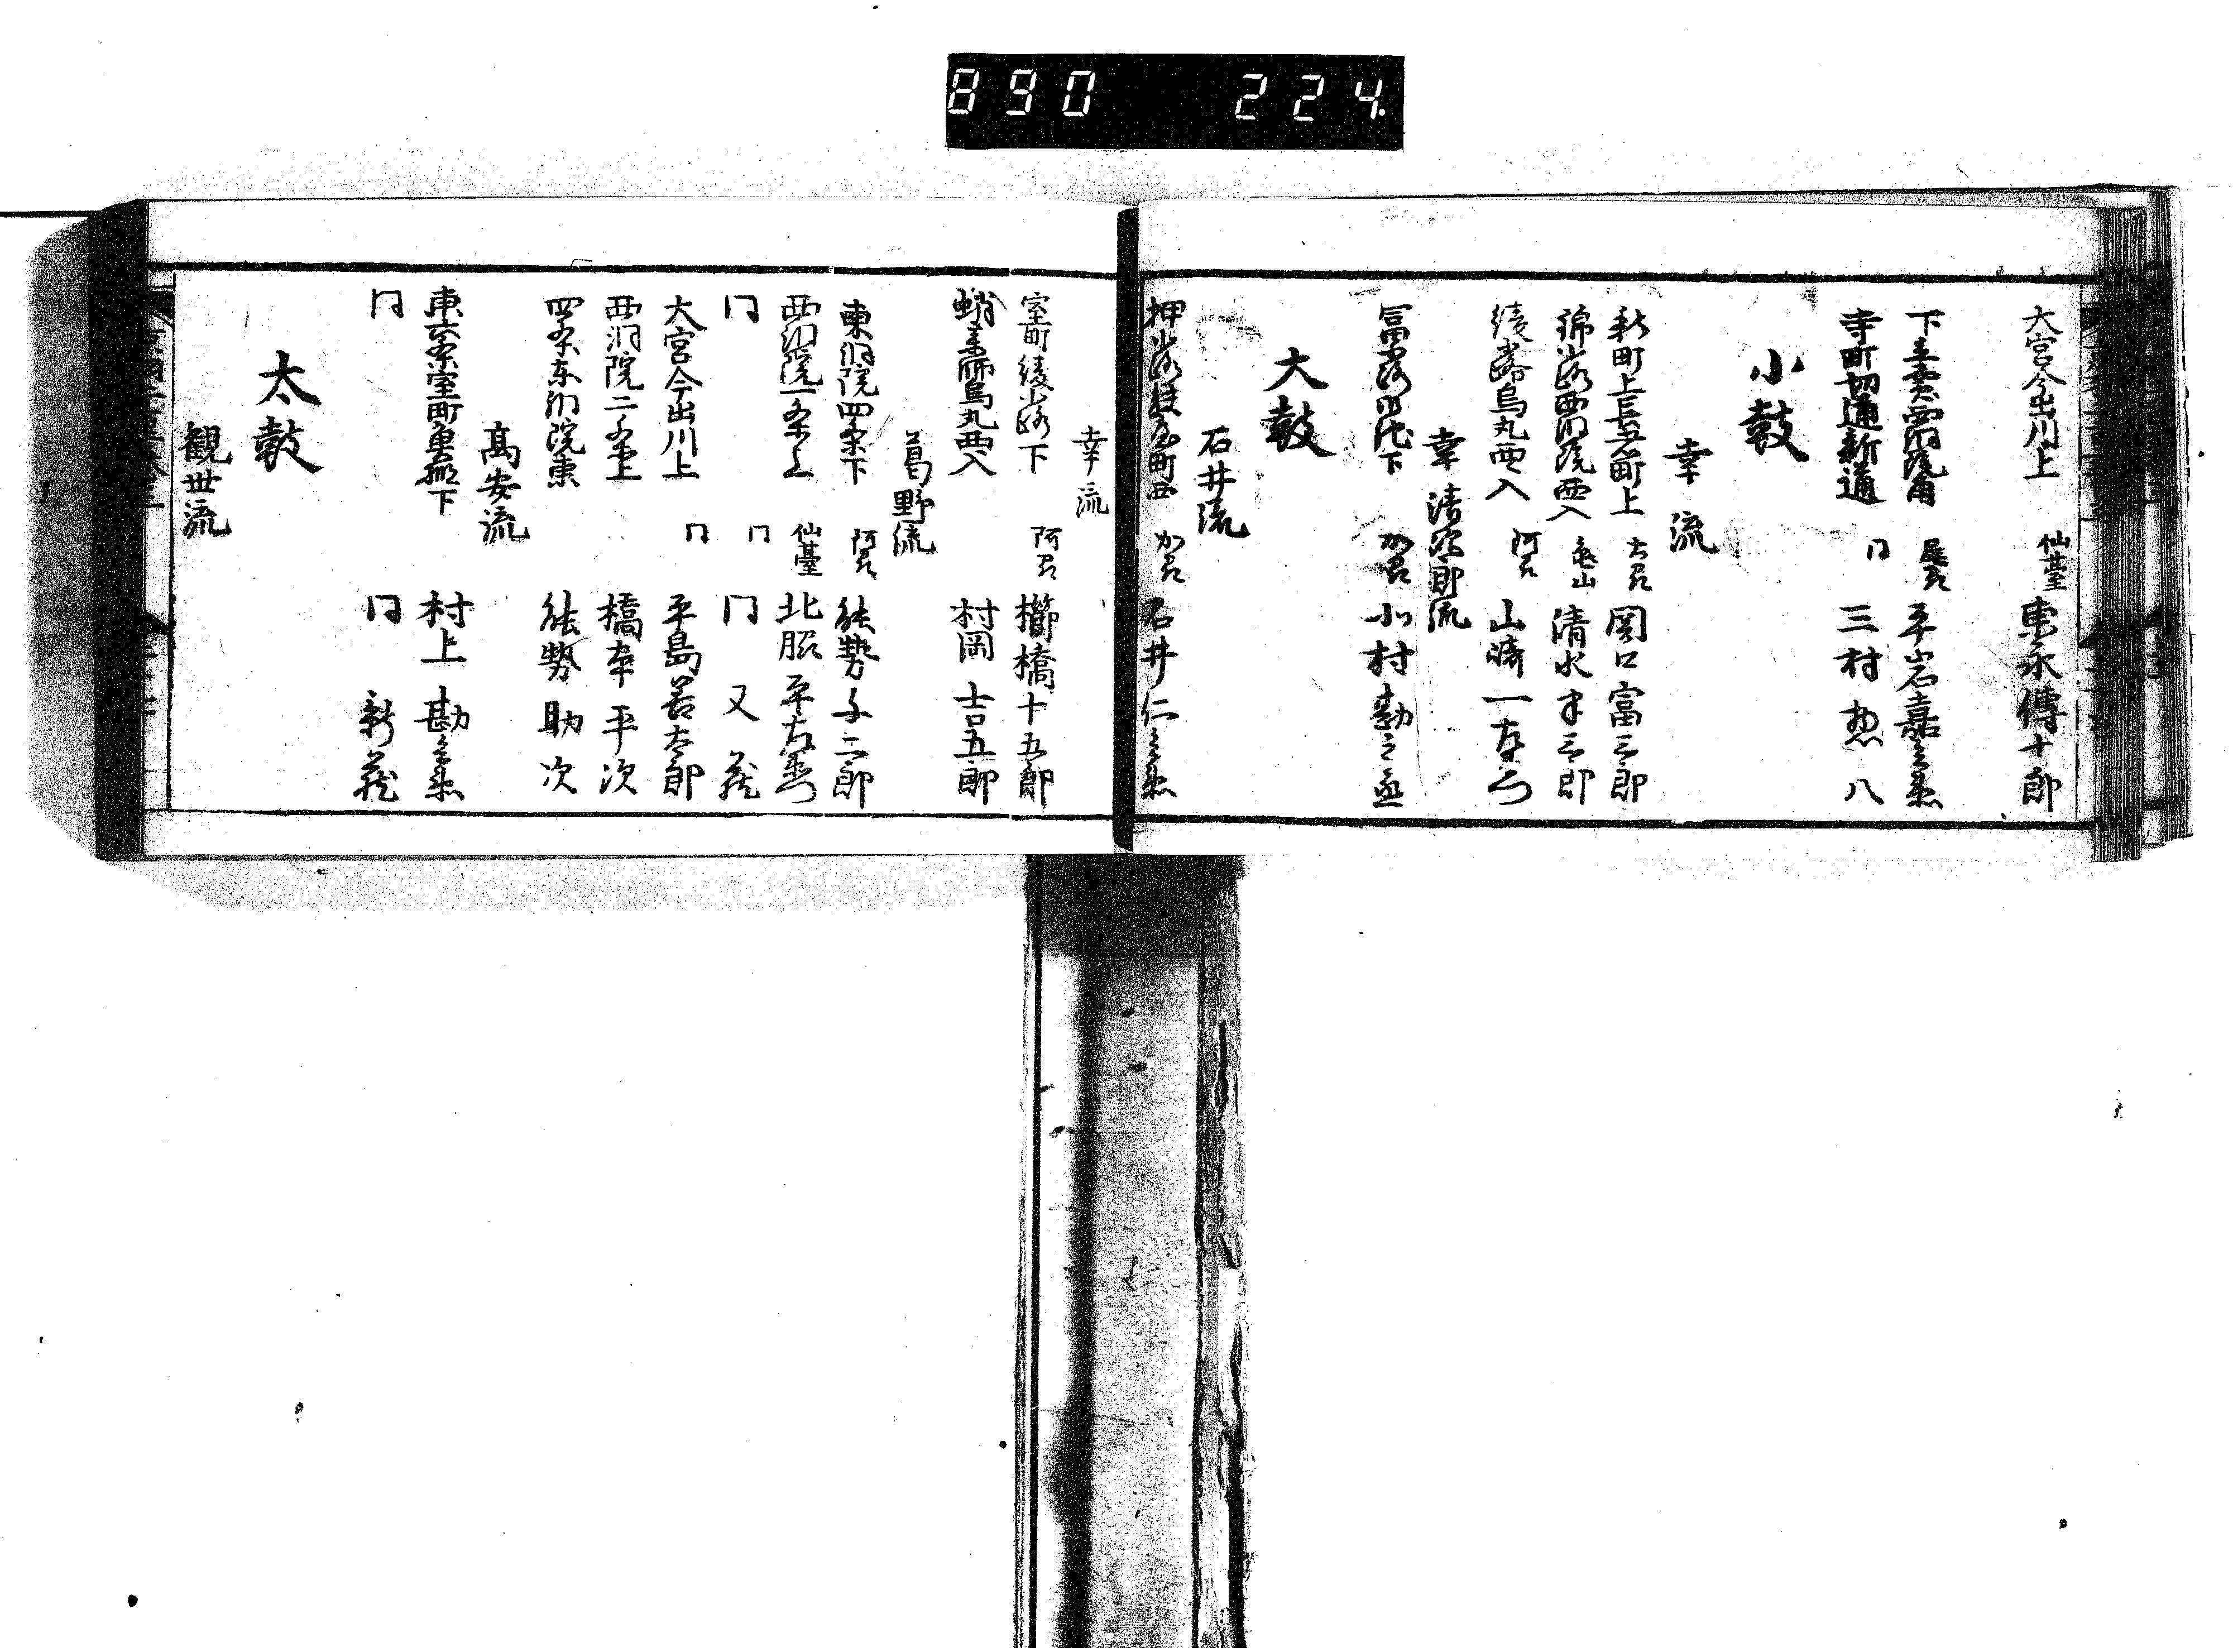 890 224
大宮今出川上 仙臺 東永傳十郎
下立賣西洞院角 平岩嘉兵衛
寺町切通新道 〃 三村惣八
小鼓
幸流
新町上長者町上 関口富三郎
錦小路西洞院西入 亀山 清水半三郎
綾小路烏丸西入 阿 山崎一左衛門
幸清次郎流
冨小路 下 加 小村勘之丞
大鼓
石井流
押小路 町西 加 石井仁兵衛
幸流
室町綾小路下 阿 櫛橋十五郎
蛸薬師烏丸西入 村岡吉五郎
葛野流
東洞院四条下 阿 能勢 二郎
西洞院一条上 仙臺 北脇平右衛門
同 同 同 又蔵
大宮今出川上 同 平島善太郎
西洞院二条上 橋本平次
四条東洞院東 能勢助次
髙安流
東六条室町魚棚下 村上勘兵衛
同 同 新蔵
太鼓
観世流